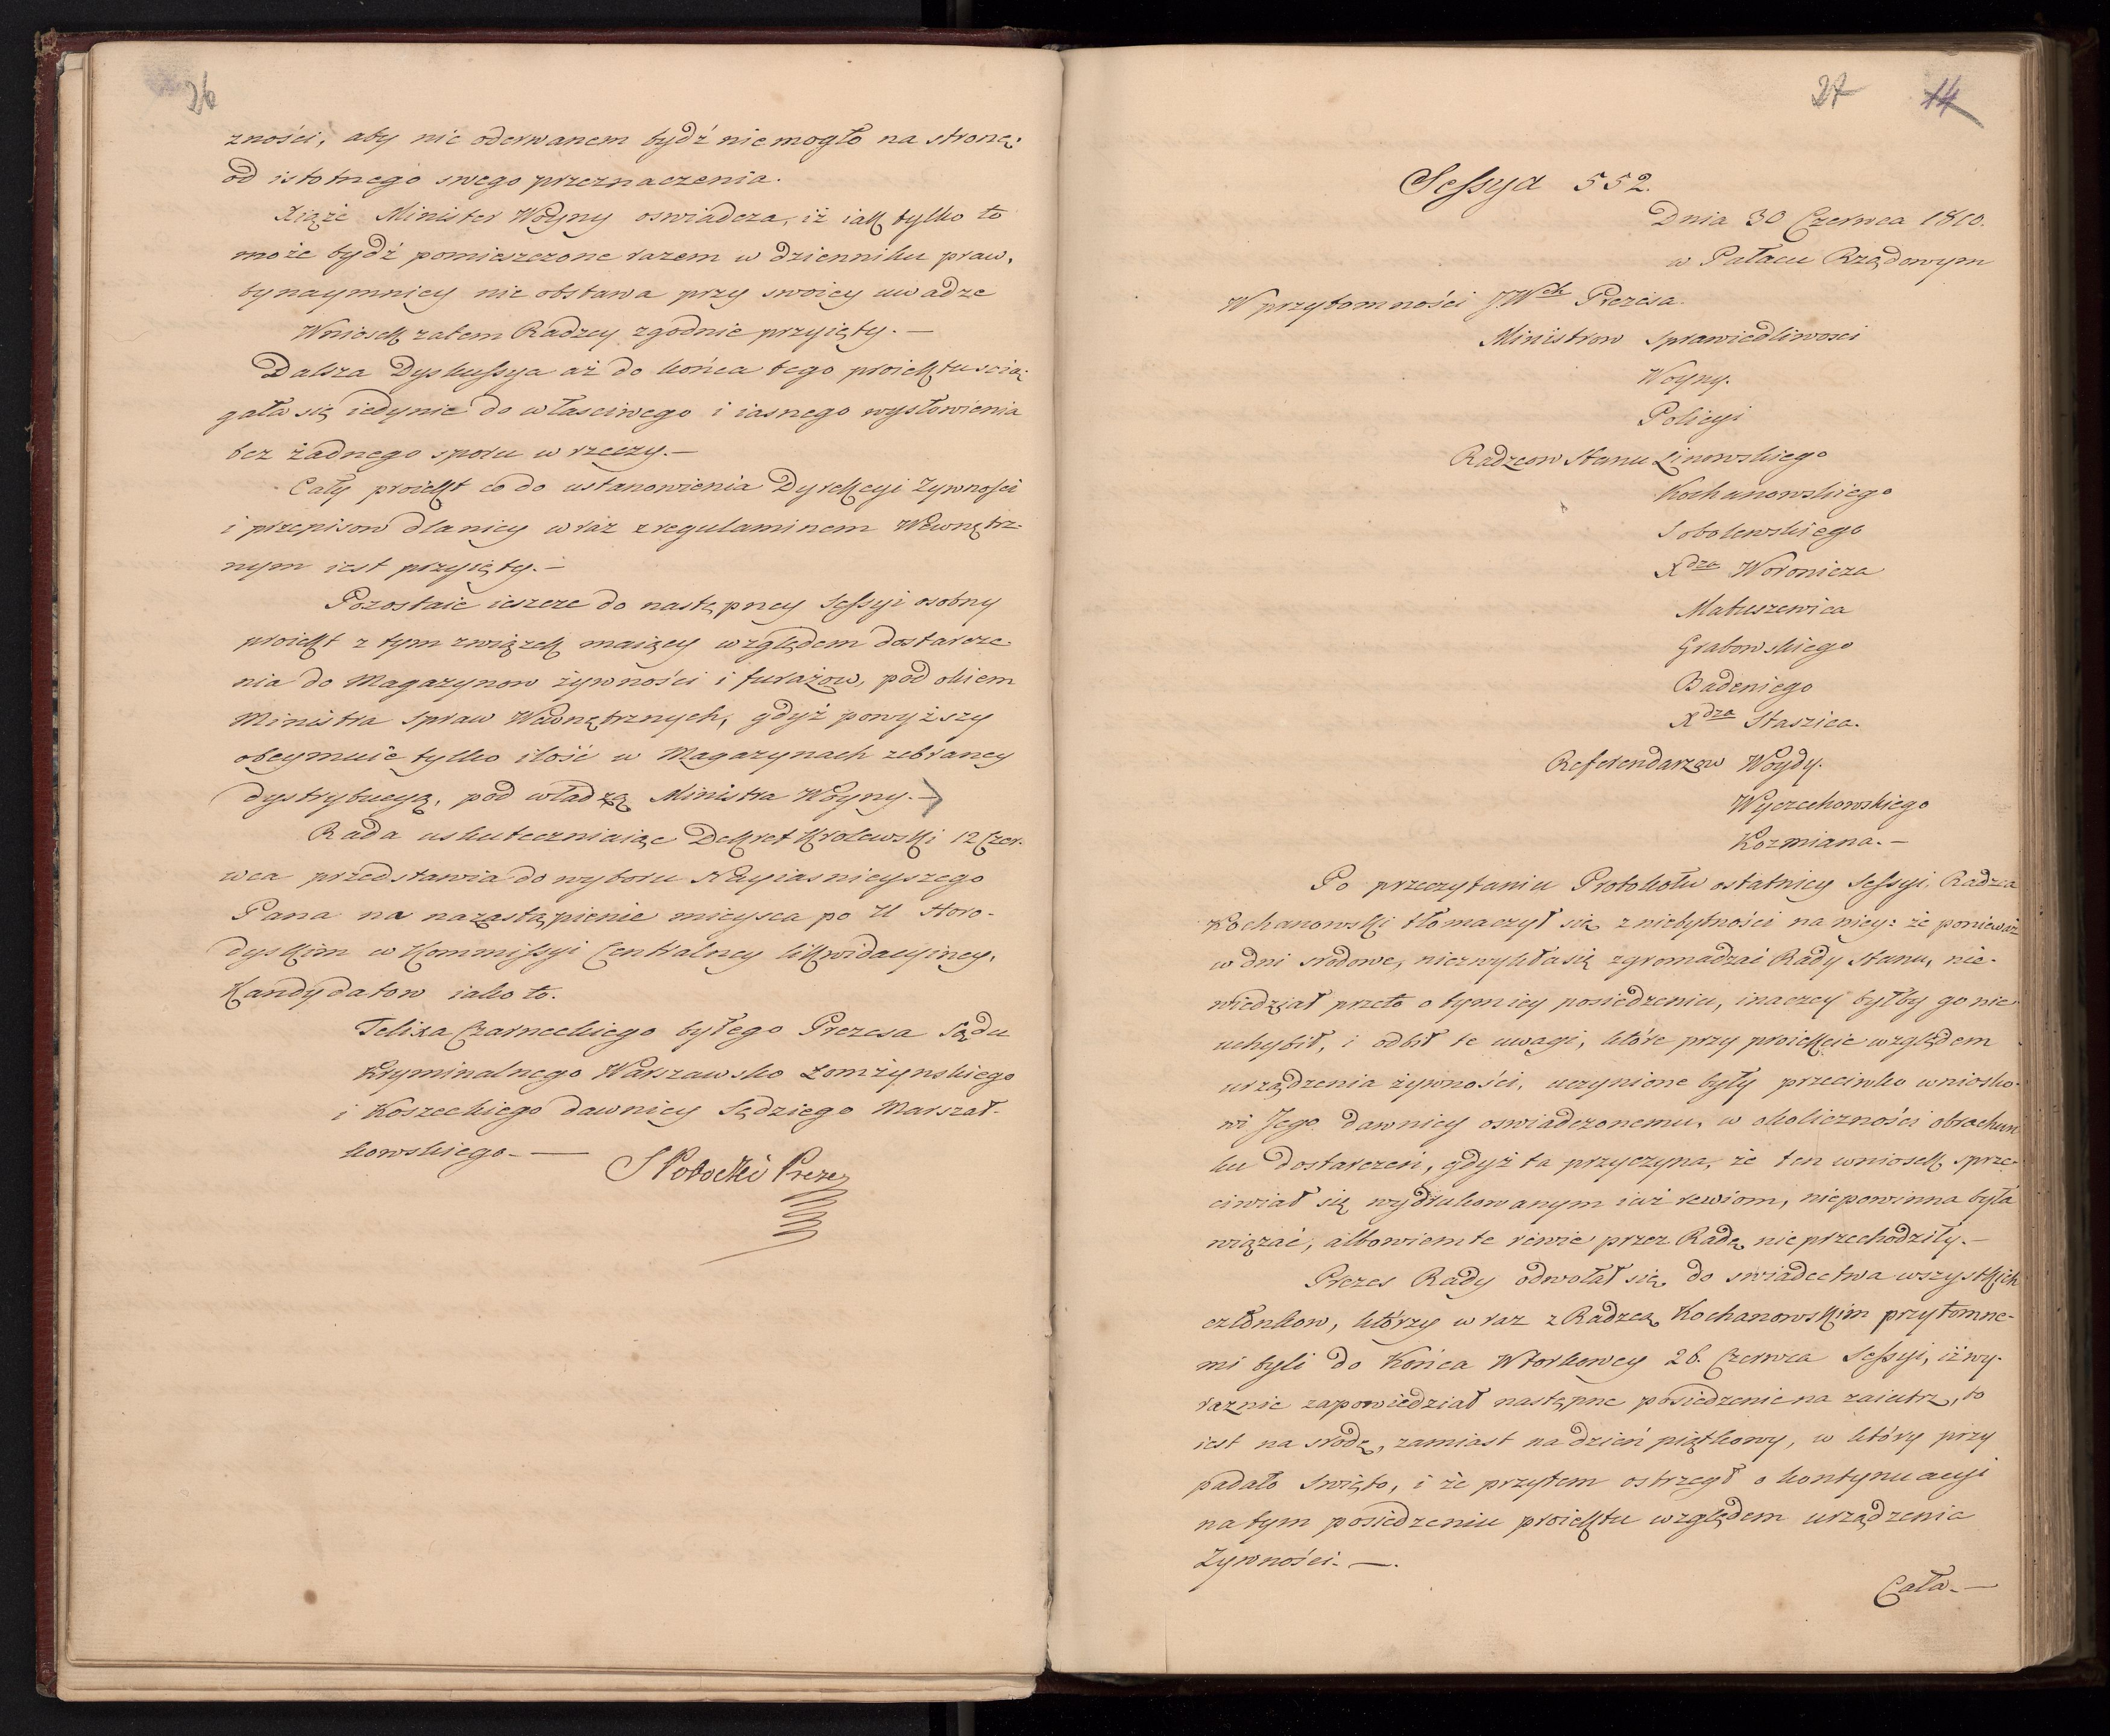 26
zności, aby nic oderwanem bydź niemogło na stronę
od istotnego swego przeznaczenia.
Xiąże Minister Woyny oswiadcza, iż iak tylko to
może bydź pomieszczone razem w dzienniku praw,
bynaymniey nie obstawa przy swoiey uwadze
Wniosek zatem Radzcy zgodnie przyięty. —
Dalsza Dyskussya aż do końca tego proiektu scią-
gała się iedynie do własciwego i iasnego wysłowienia
bez żadnego sporu w rzeczy. —
Cały proiekt co do ustanowienia Dyrekcyi Zywności
i przepisow dla niey wraz z regulaminem Wewnętrz-
nym iest przyięty. —
Pozostaie ieszcze do następney Sessyi osobny
proiekt z tym związek maiący względem dostarcze-
nia do Magazynow żywności i furażow, pod okiem
Ministra Spraw Wewnętrznych, gdyż powyższy
obeymuie tylko ilość w Magazynach zebraney
dystrybucyą, pod władzą Ministra Woyny. —
Rada uskuteczniaiąc Dekret Krolewski 12 Czer-
wca przedstawia do wyboru Nayiasnieyszego
Pana na nazastąpienie mieysca po U Horo-
dyskim w Kommissyi Centralney likwidacyiney,
Kandydatow iako to.
Felixa Czarneckiego byłego Prezesa Sądu
Kryminalnego Warszawsko Łomżynskiego
i Koszeckiego dawniey Sędziego Marszał-
kowskiego. —
S Potocki Prezes
27 14
Sessya 552.
Dnia 30 Czerwca 1810.
w Pałacu Rządowym
W przytomności JWch Prezesa.
Ministrow Sprawiedliwosci
Woyny.
Policyi
Radzcow Stanu Linowskiego
Kochanowskiego
Sobolewskiego
Xdza Woronicza
Matuszewica
Grabowskiego
Badeniego
Xdza Staszica.
Referendarzow Woydy.
Wyczechowskiego
Kozmiana. —
Po przeczytaniu Protokołu ostatniey Sessyi, Radzca
Kochanowski tłomaczył się z niebytności na niey: że ponieważ
w dni srodowe, niezwykła się zgromadzać Rady Stanu, nie-
wiedział przeto o tymiey posiedzeniu, inaczey byłby go nie
uchybił, i odbił te uwagi, które przy proiekcie względem
urządzenia żywności, uczynione były przeciwko wniosko-
wi Jego dawniey oswiadczonemu, w okoliczności obrachun
ku dostarczeń, gdyż ta przyczyna, że ten wniosek sprze-
ciwiał się wydrukowanym iuż rewiom, niepowinna była
wiązać, albowiem te rewie przez Radę nie przechodziły. —
Prezes Rady odwołał się do swiadectwa wszystkich
członkow, którzy wraz z Radzcą Kochanowskim przytomne-
mi byli do Końca Wtorkowey 26. Czerwca Sessyi, iż wy-
raznie zapowiedział następne posiedzenie na zaiutrz, to
iest na srodę, zamiast na dzień piątkowy, w który przy
padało Swięto, i że przytem ostrzegł o kontynuacyi
na tym posiedzeniu proiektu względem urządzenia
Zywności. —.
Cała. —